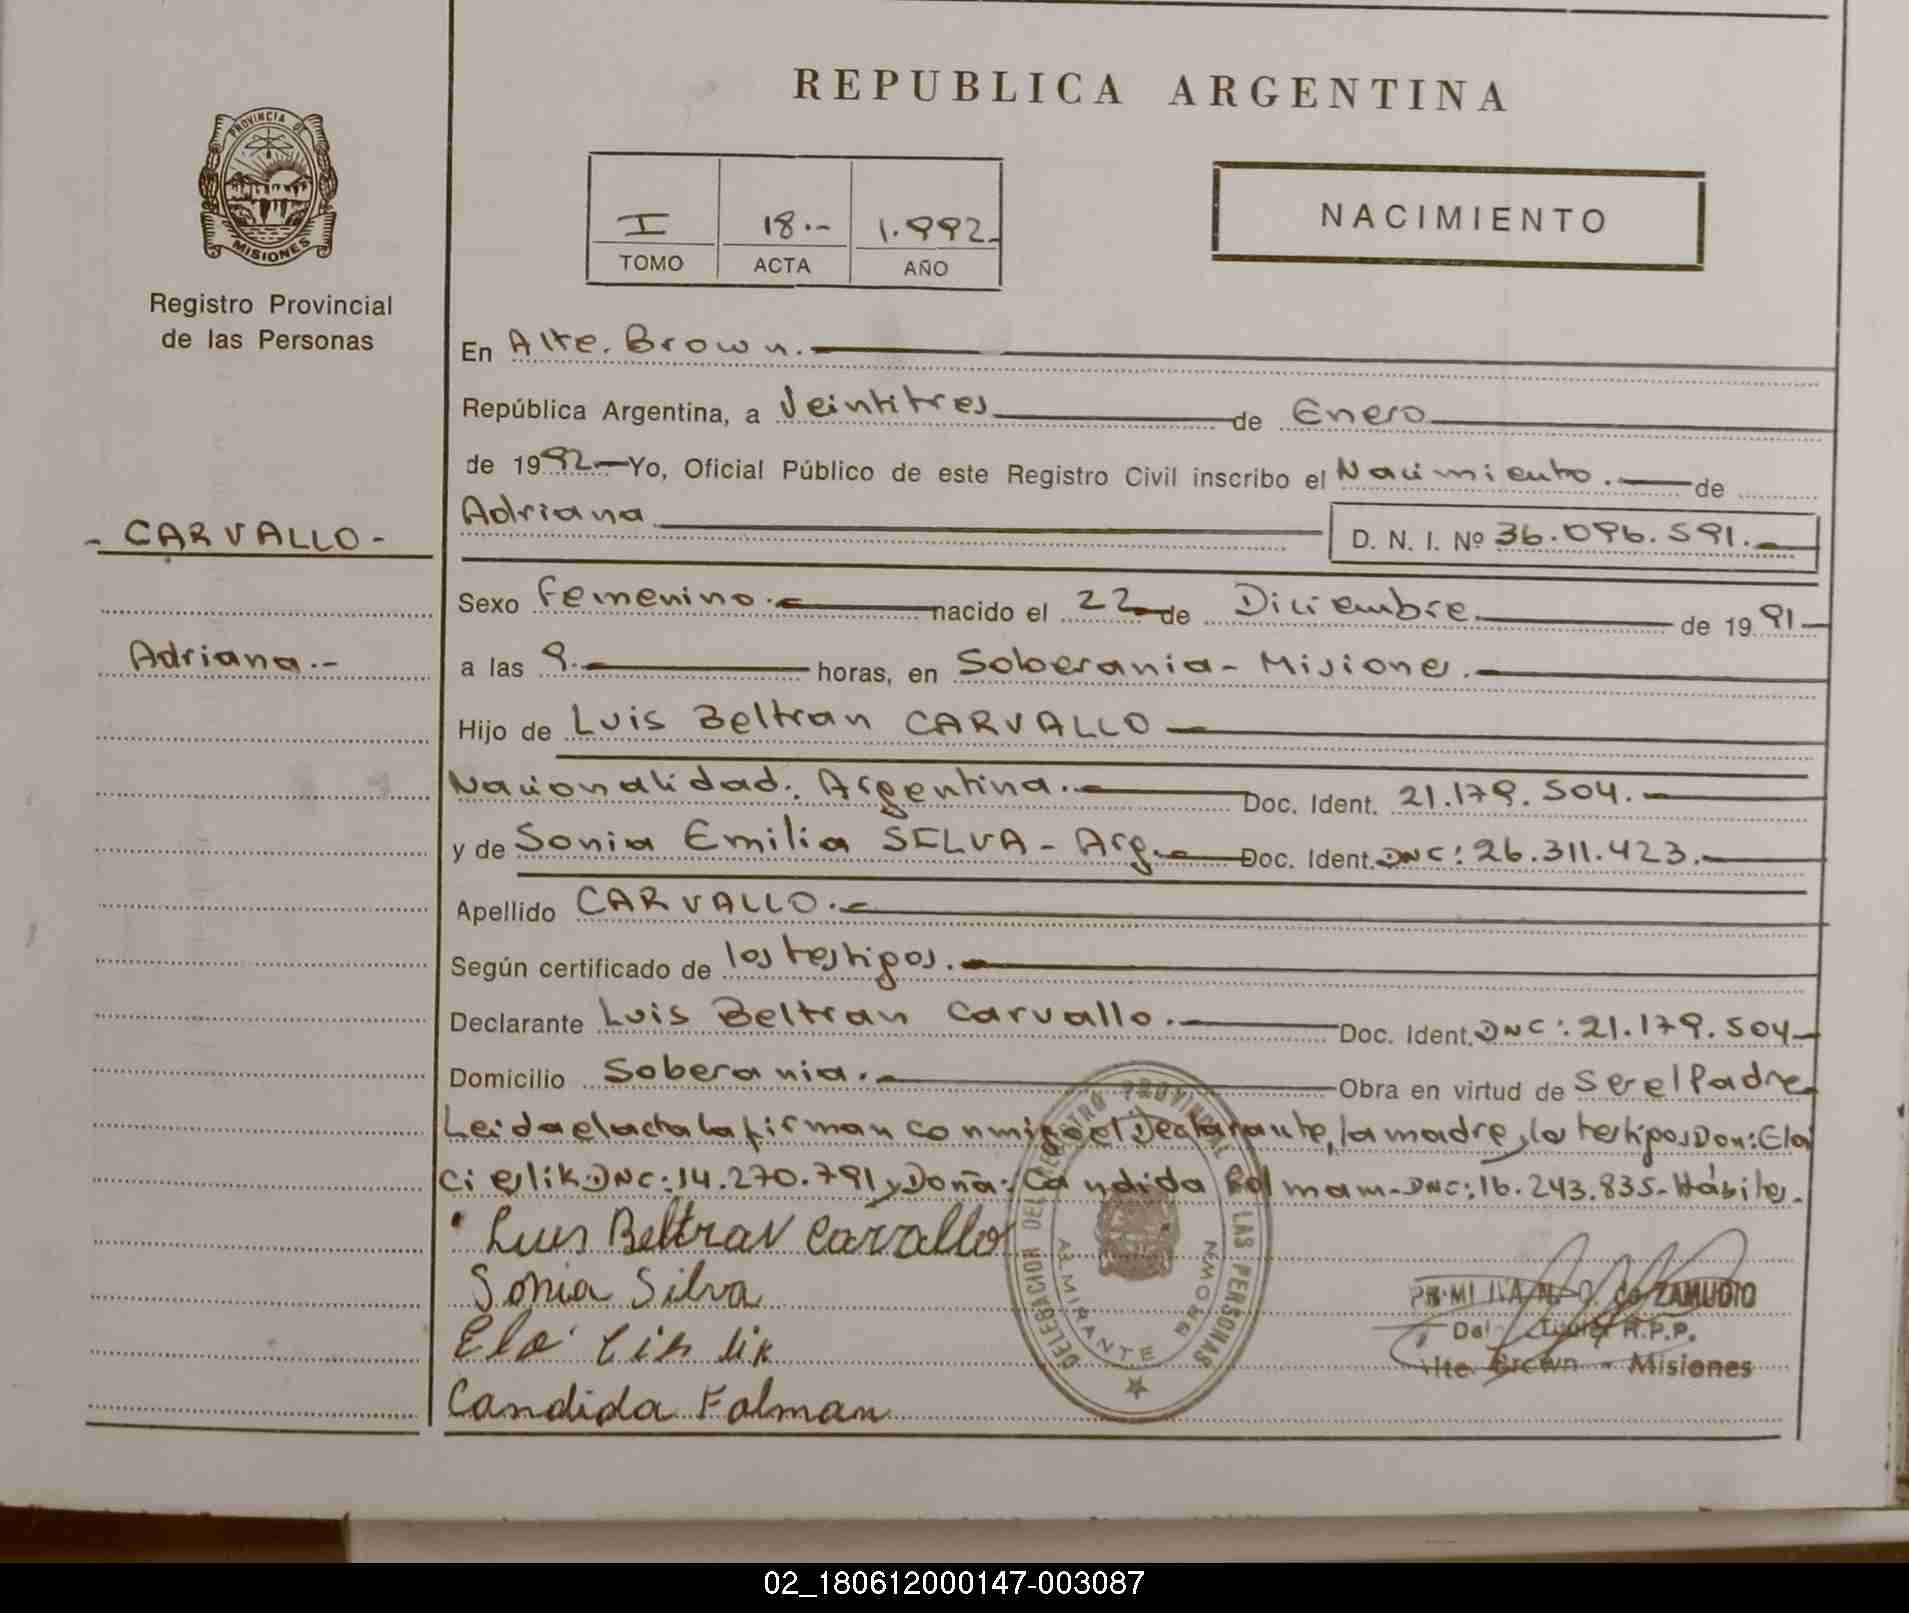 REPUBLICA ARGENTINA
PROVINCIA DE
MISIONES
Registro Provincial
de las Personas
I 18.-- 1.992-
TOMO ACTA AÑO
NACIMIENTO
En Alte. Brown.
República Argentina, a Veintitres de Enero
de 1992 Yo, Oficial Público de este Registro Civil inscribo el Nacimiento. de
- CARVALLO -
Adriana D. N. I. Nº 36.096.591.
Sexo Femenino. nacido el 22 de Diciembre de 1991
Adriana.-
a las 9. horas, en Soberania - Misiones.
Hijo de Luis Beltran CARVALLO
Nacionalidad: Argentina. Doc. Ident. 21.179.504.
y de Sonia Emilia SILVA - Arg. Doc. Ident. DNC: 26.311.423.
Apellido CARVALLO.
Según certificado de los testigos.
Declarante Luis Beltran Carvallo. Doc. Ident. DNC: 21.179.504
Domicilio Soberania. Obra en virtud de Ser el Padre
Leida el acta la firman conmigo el Declarante, la madre, los testigos Don: Eloi
Cieslik DNC: 14.270.791 y Doña: Candida Folmam - DNC: 16.243.835 - Hábiles.
Luis Beltran Carvallo
Sonia Silva
Candida Folman
DELEGACION DEL REGISTRO PROVINCIAL DE LAS PERSONAS
ALMIRANTE BROWN
ZAMUDIO
Titular R.P.P.
Alte. Brown - Misiones
02_180612000147-003087